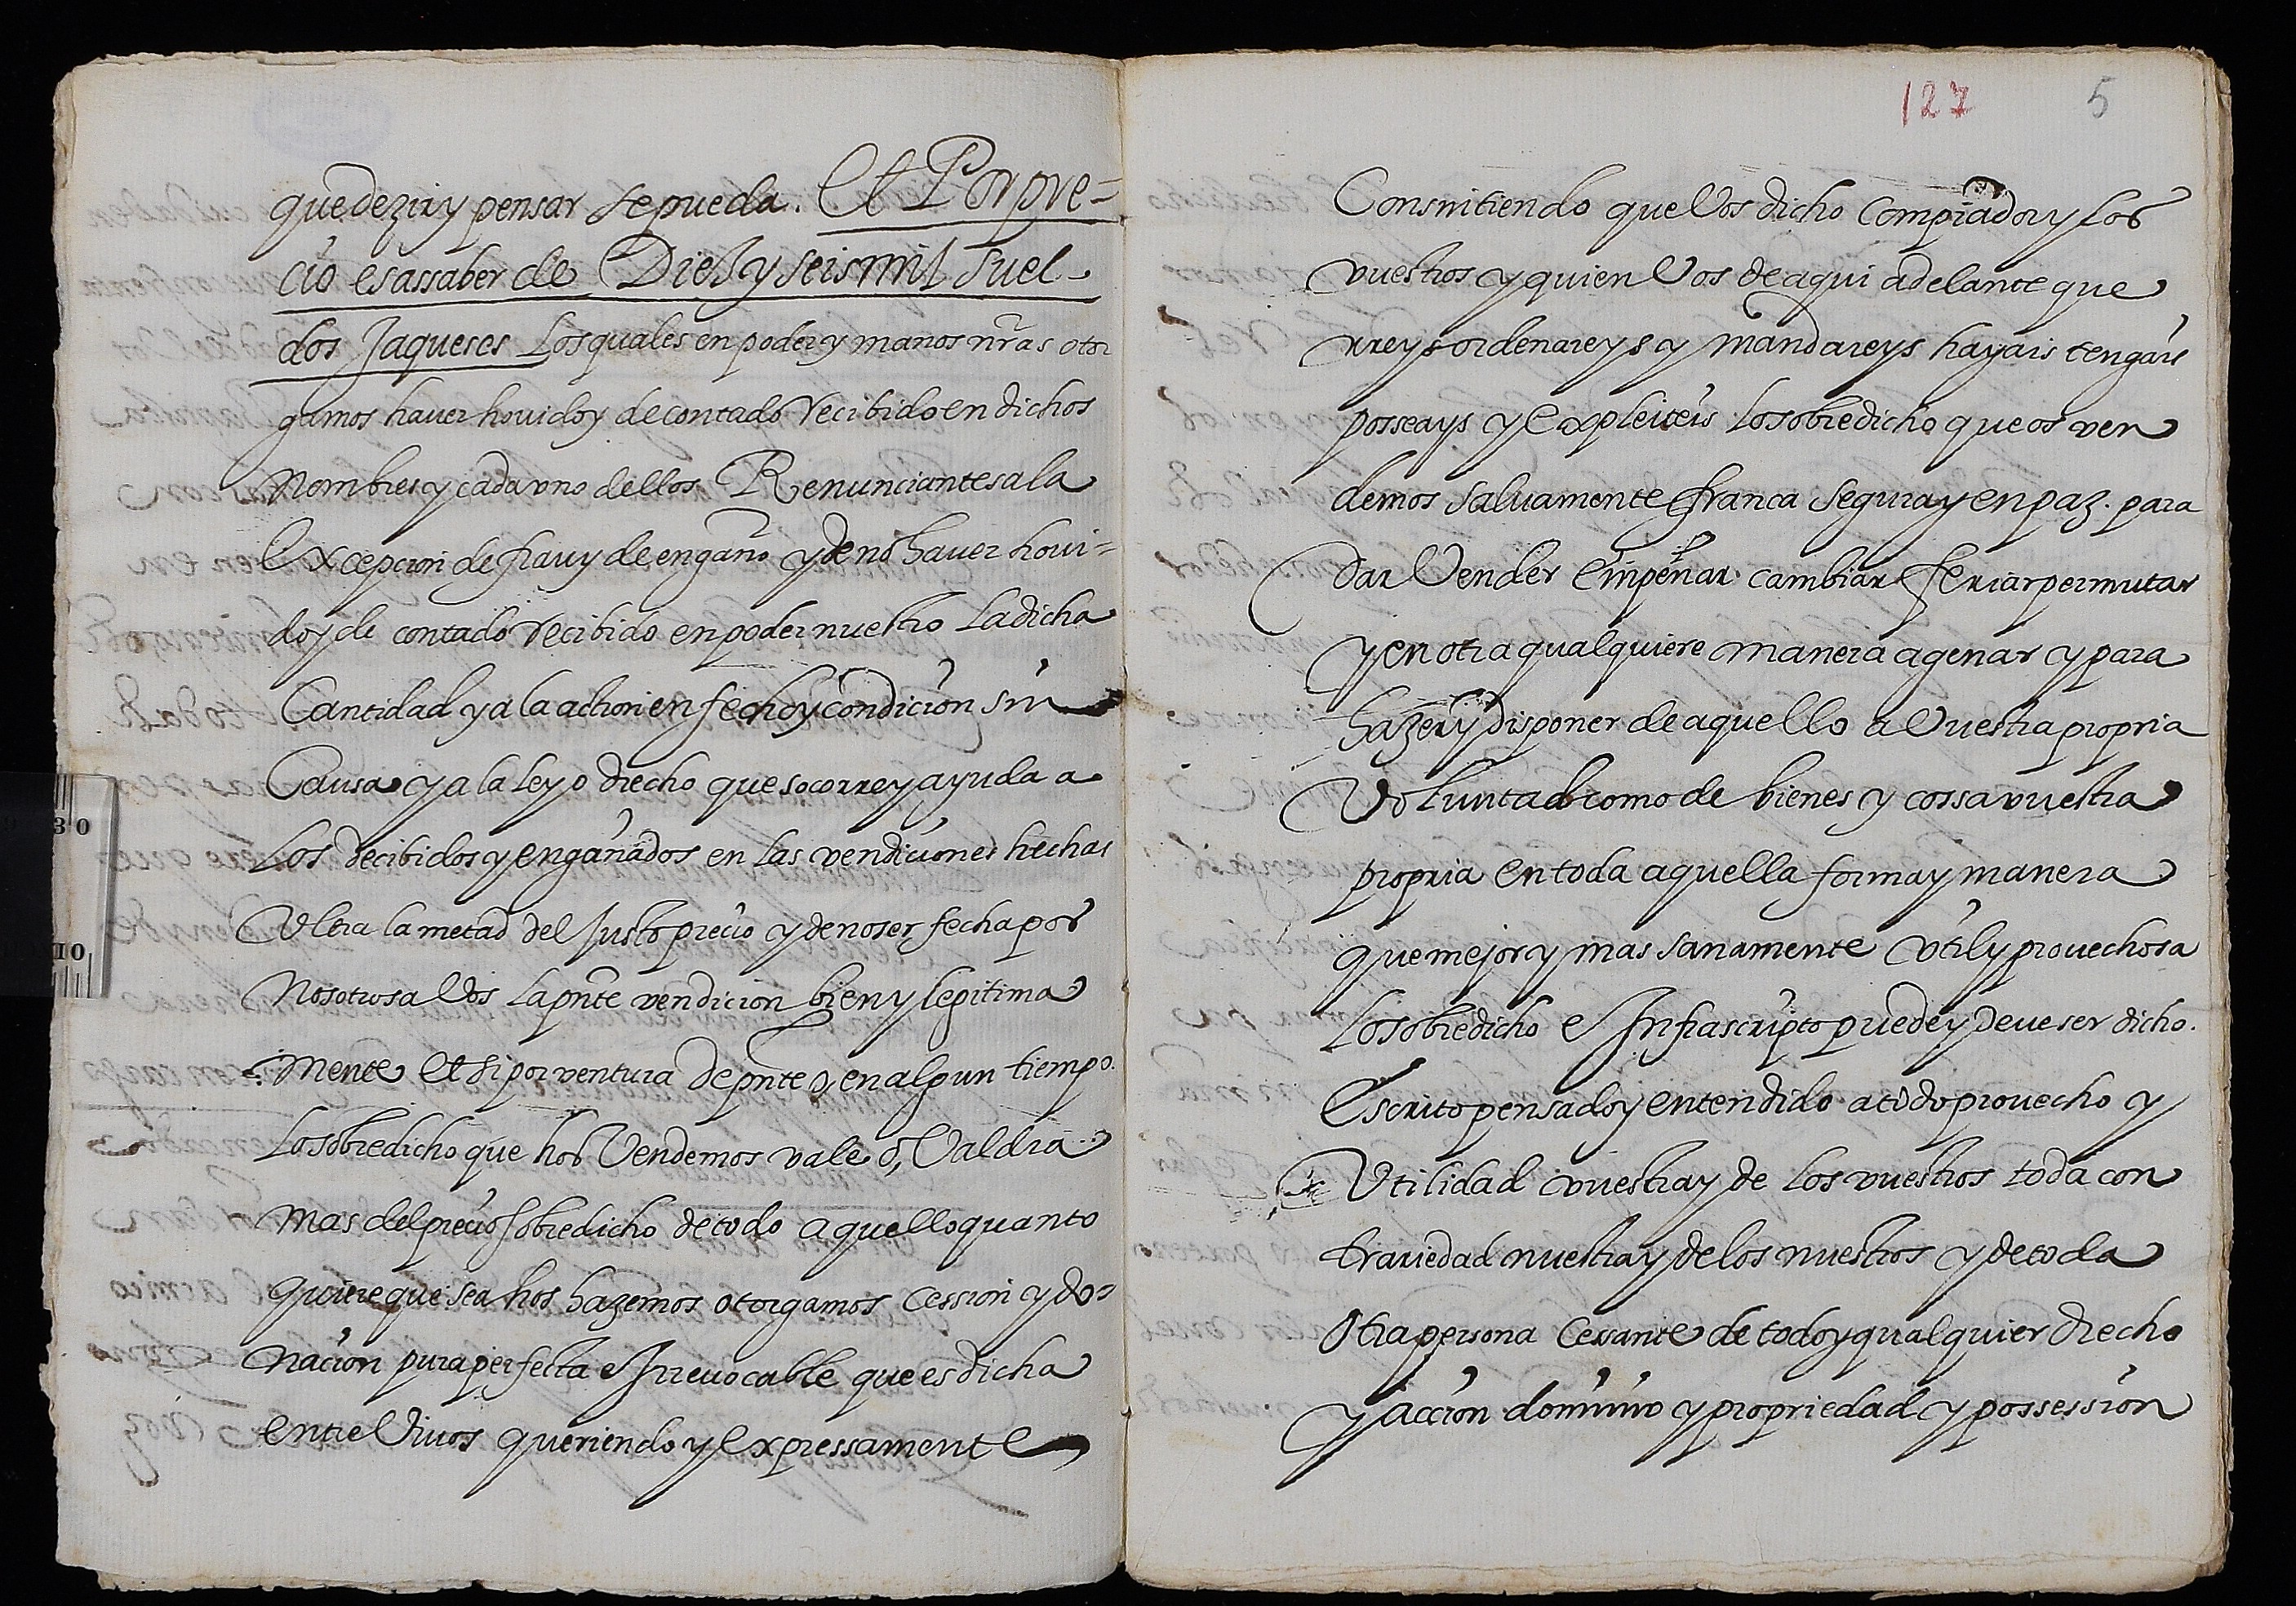 que dezir y pensar se pueda. Et Por pre=
cio es assaber de Diez y seis mil suel-
dos Jaqueses Los quales en poder y manos nr̃as otor
gamos haver hovido y de contado recibido en dichos
Nombres y cada vno dellos Renunciantes a la
Excepcion de frau y de engaño y de no haver hovi=
do y de contado recibido en poder nuestro La dicha
Cantidad y a la action en fecho y condicion sin
Causa y a la Ley o drecho que socorre y ayuda a
Los decibidos y engañados en las vendiciones hechas
Vltra la metad del Justo precio y de no ser fecha por
Nosotros a Vos la pñte vendicion bien y legitima
mente Et si por ventura de pñte o, en algun tiempo.
Lo sobredicho que hos Vendemos vale o, Valdra
Mas del precio sobredicho de todo aquello quanto
quiere que sea hos hazemos otorgamos cession y do=
nacion pura perfecta e Irreuocable que es dicha
entre Viuos queriendo y expressamente
127 5
Consintiendo que Vos dicho comprador y Los
vuestros y quien Vos de aqui adelante que
rreys ordenareys y mandareys hayais tengais
posseays y expleiteis Lo sobredicho que os ven
demos saluamente franca segura y en paz. para
Dar Vender Empeñar cambiar feriar permutar
y en otra qualquiere manera agenar y para
hazer y disponer de aquello a Vuestra propria
Voluntad como de bienes y cossa vuestra
propria en toda aquella forma y manera
que mejor y mas sanamente vtil y prouechosa
Lo sobredicho e Infrascripto puede y deue ser dicho.
Escrito pensado y entendido a todo prouecho y
Vtilidad vuestra y de los vuestros toda con
trariedad nuestra y de los nuestros y de toda
Otra persona Cessante de todo y qualquier drecho
y accion dominio y propriedad y possession